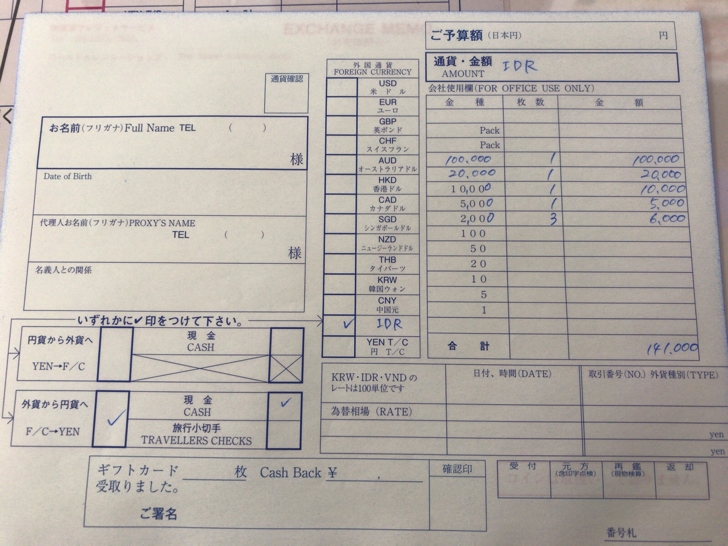 ご予算額(日本円) 円
通貨・金額 IDR
AMOUNT
会社使用欄(FOR OFFICE USE ONLY)
金 種 枚 数 金 額
Pack
Pack
100,000 1 100,000
20,000 1 20,000
10,000 1 10,000
5,000 1 5,000
2,000 3 6,000
100
50
20
10
5
1
合 計 141,000
通貨確認
外国通貨
FOREIGN CURRENCY
USD
米 ドル
EUR
ユーロ
GBP
英ポンド
CHF
スイスフラン
AUD
オーストラリアドル
HKD
香港ドル
CAD
カナダドル
SGD
シンガポールドル
NZD
ニュージーランドドル
THB
タイバーツ
KRW
韓国ウォン
CNY
中国元
✓ IDR
YEN T/C
円 T/C
お名前(フリガナ)Full Name TEL ( )
様
Date of Birth
代理人お名前(フリガナ)PROXY'S NAME
TEL ( )
様
名義人との関係
いずれかに✓印をつけて下さい。
円貨から外貨へ
YEN→F/C
現 金
CASH
外貨から円貨へ
F/C→YEN
✓
現 金
CASH
✓
旅行小切手
TRAVELLERS CHECKS
KRW・IDR・VNDの
レートは100単位です
日付、時間(DATE)
取引番号(NO.)外貨種別(TYPE)
為替相場(RATE)
yen
yen
ギフトカード 枚 Cash Back ¥ ,
受取りました。
ご署名
確認印
受 付 元 方 再 鑑 返 却
番号札